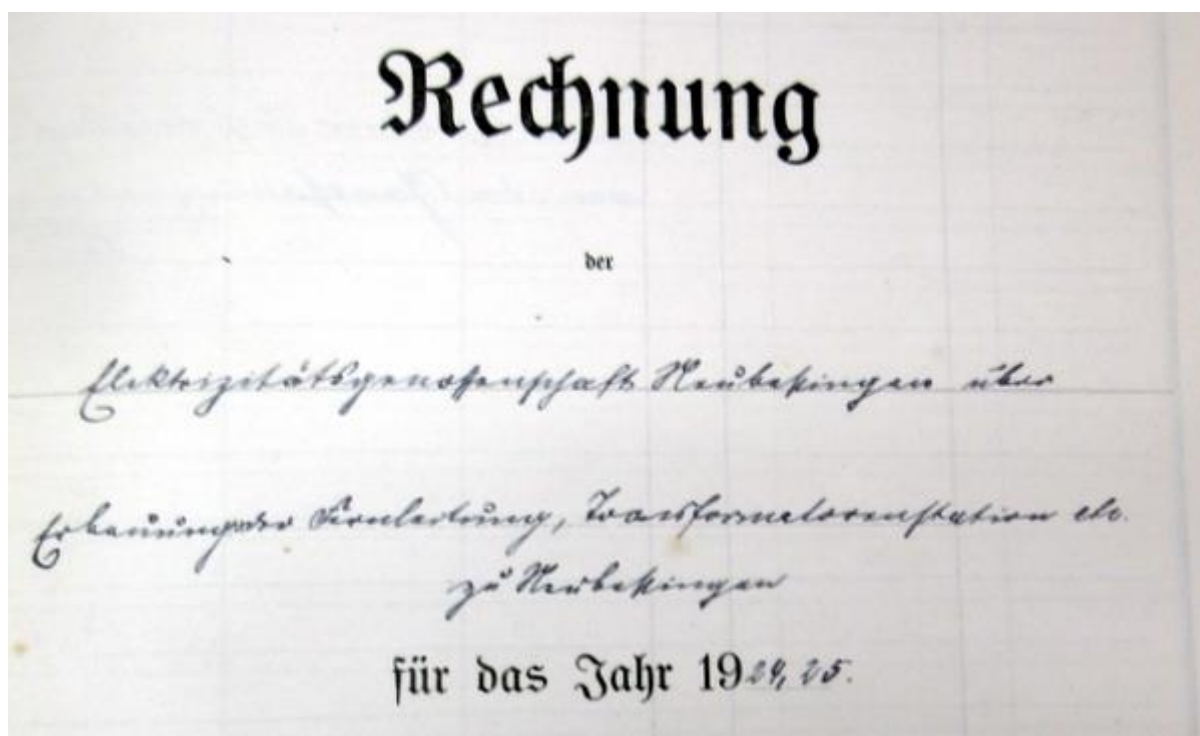 Rechnung
der
Elektrizitätsgenossenschaft Neubessingen über
Erbauung der Fernleitung, Transformatorenstation etc.
zu Neubessingen
für das Jahr 1924, 25.